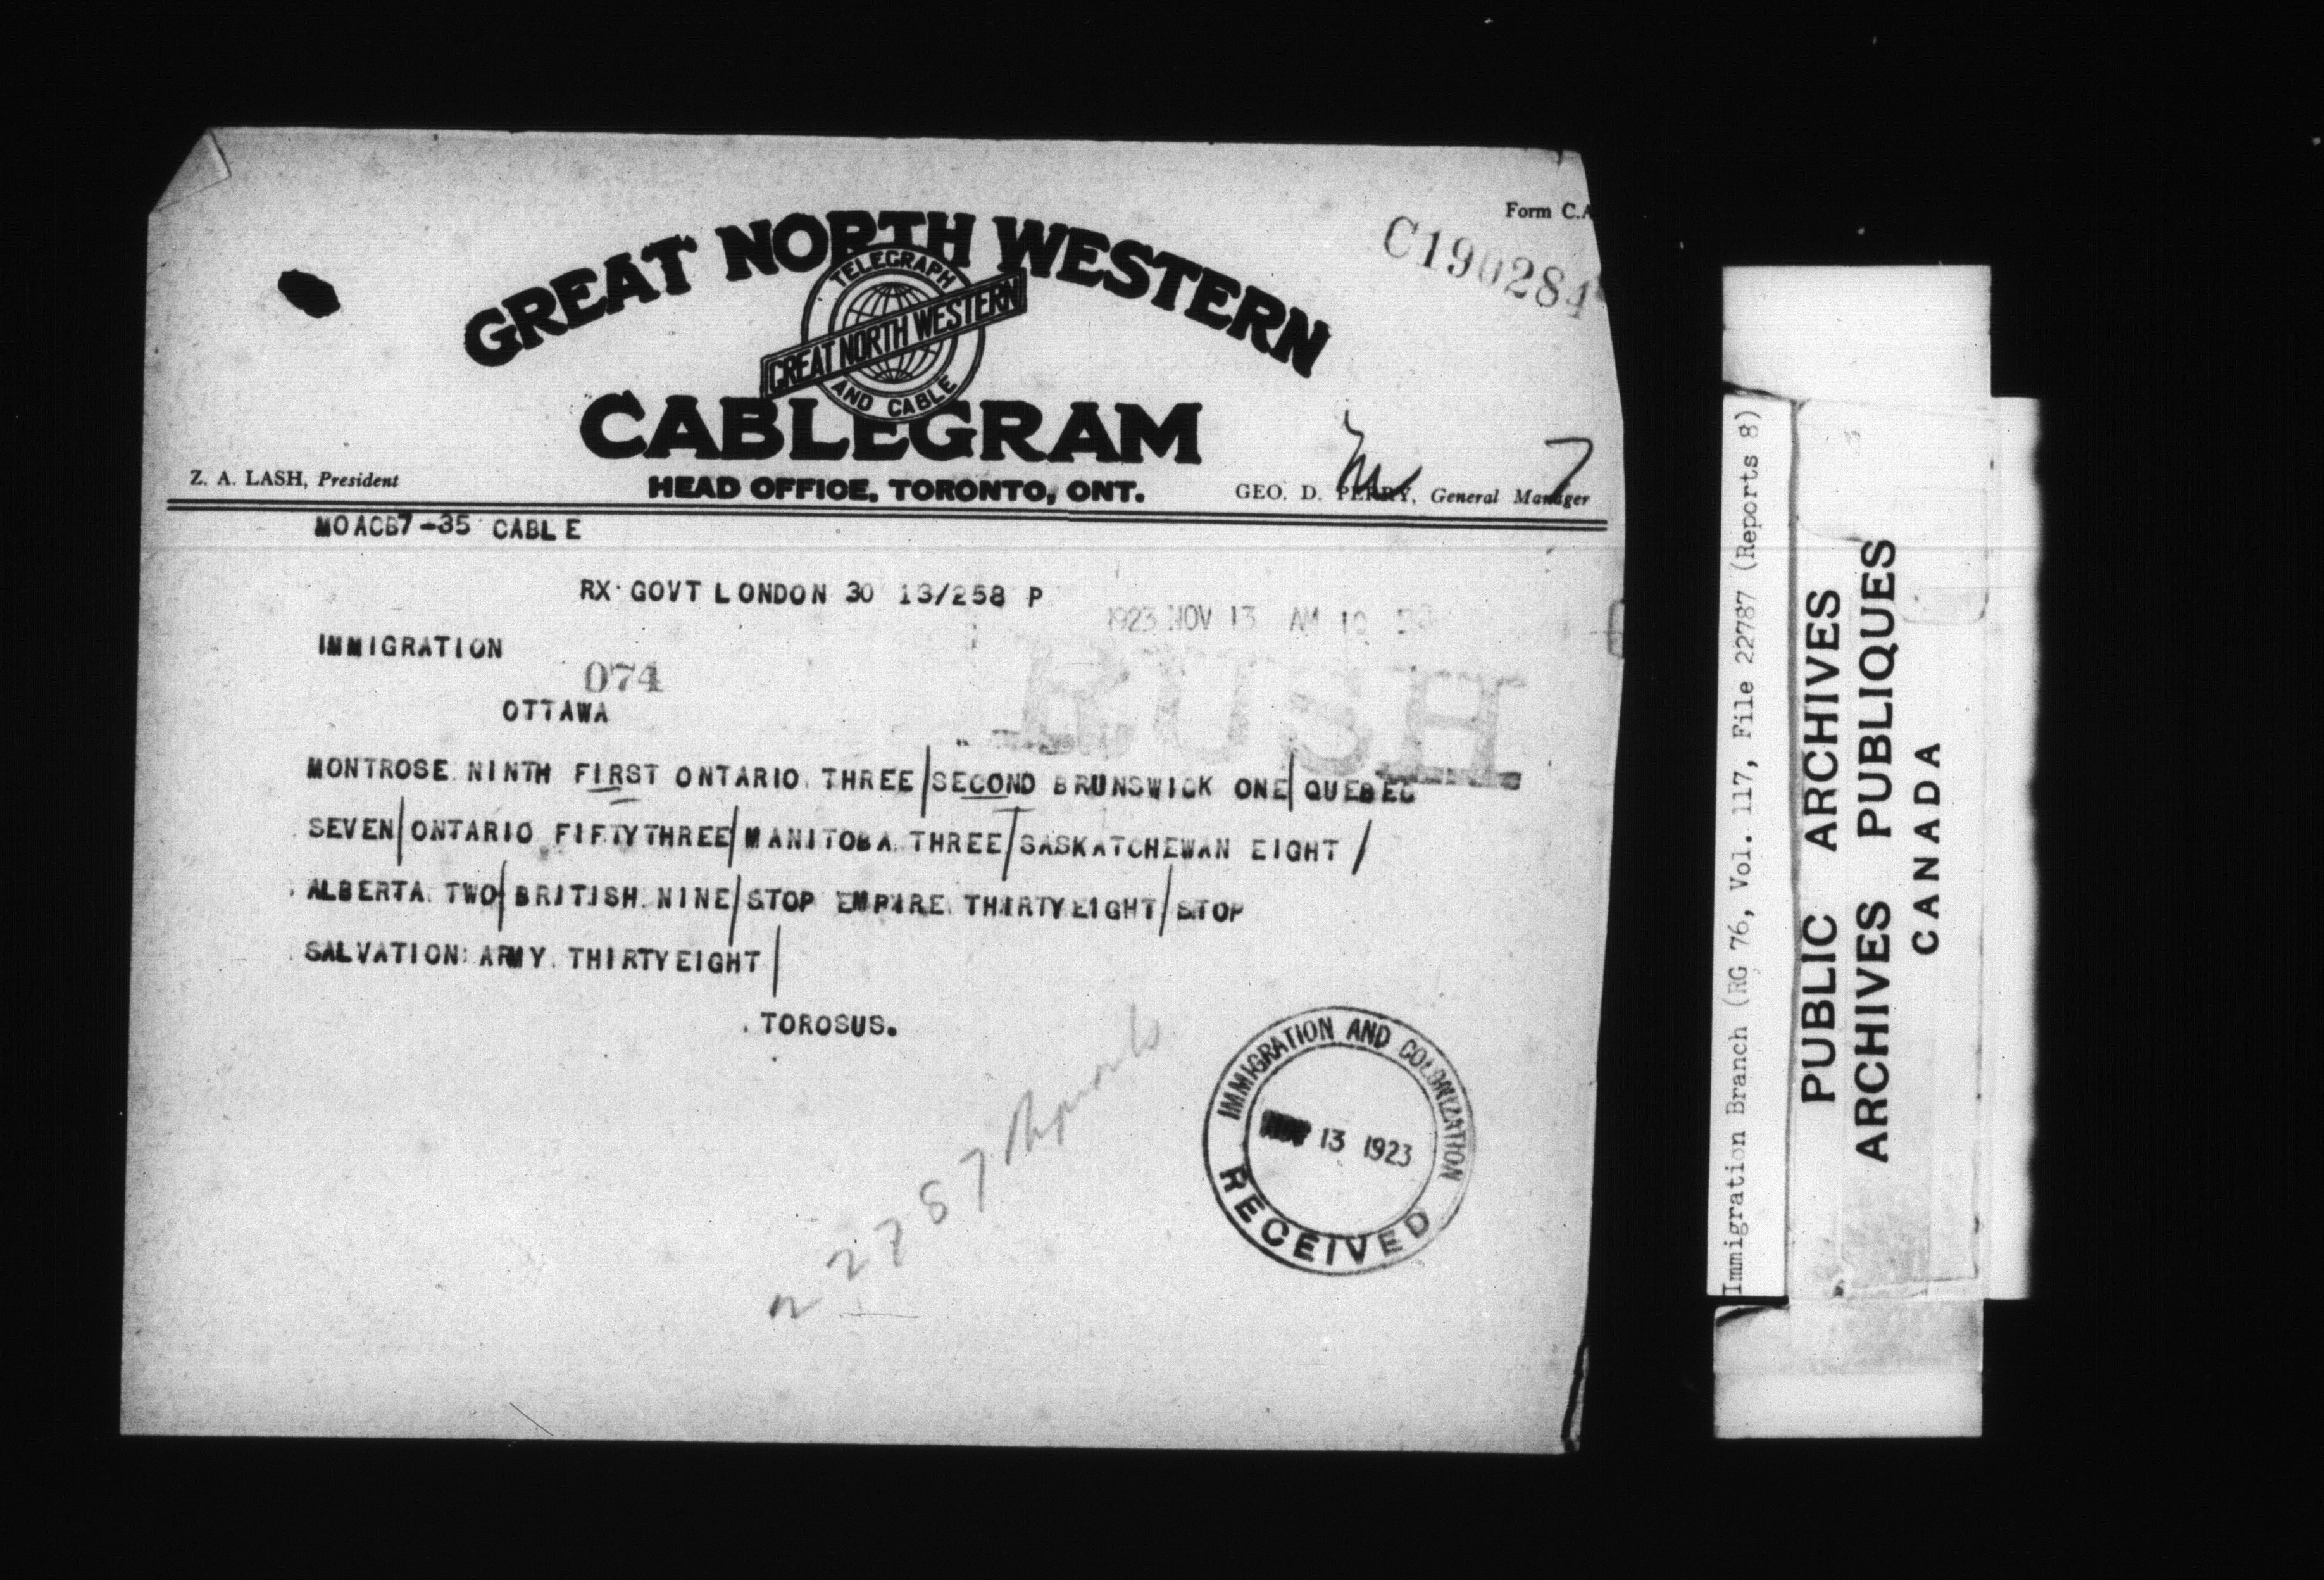 Form C.A
C190284
GREAT NORTH WESTERN
TELEGRAPH
GREAT NORTH WESTERN
AND CABLE
CABLEGRAM
Z. A. LASH, President
HEAD OFFICE, TORONTO, ONT.
GEO. D. PERRY, General Manager
7
MOACB7-35 CABLE
RX GOVT LONDON 30 13/258 P
1923 NOV 13 AM 10
IMMIGRATION
074
OTTAWA
RUSH
MONTROSE NINTH FIRST ONTARIO THREE/SECOND BRUNSWICK ONE/QUEBEC
SEVEN/ONTARIO FIFTYTHREE/MANITOBA THREE/SASKATCHEWAN EIGHT/
ALBERTA TWO/BRITISH NINE/STOP EMPIRE THIRTYEIGHT/STOP
SALVATION ARMY THIRTYEIGHT/
TOROSUS.
22787 Reports
IMMIGRATION AND COLONIZATION
NOV 13 1923
RECEIVED
Immigration Branch (RG 76, Vol. 117, File 22787 (Reports 8)
PUBLIC ARCHIVES
ARCHIVES PUBLIQUES
CANADA